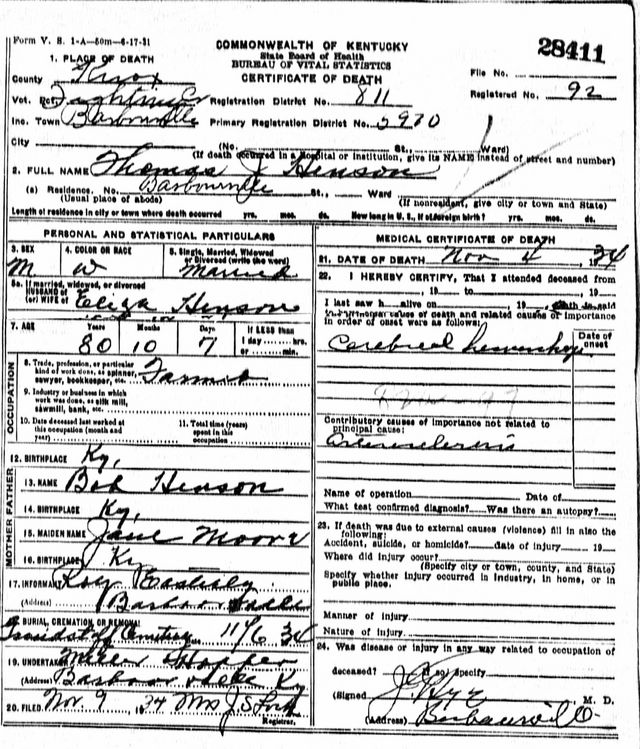 Form V. S. 1-A—50m—6-17-31
COMMONWEALTH OF KENTUCKY
State Board of Health
BUREAU OF VITAL STATISTICS
CERTIFICATE OF DEATH
28411
File No.
Registered No. 92
1. PLACE OF DEATH
County Knox
Vot. Pct. Registration District No. 811
Inc. Town Barbourville Primary Registration District No. 5970
City (No. St., Ward)
(If death occurred in a Hospital or Institution, give its NAME instead of street and number)
2. FULL NAME Thomas J Henson
(a) Residence. No. Barbourville St., Ward
(Usual place of abode) (If nonresident, give city or town and State)
Length of residence in city or town where death occurred yrs. mos. ds. How long in U. S., if of foreign birth? yrs. mos. ds.
PERSONAL AND STATISTICAL PARTICULARS
3. SEX 4. COLOR OR RACE 5. Single, Married, Widowed or Divorced (write the word)
M W Married
5a. If married, widowed, or divorced
HUSBAND of
(or) WIFE of Eliza Henson
7. AGE Years Months Days If LESS than
80 10 7 1 day hrs.
or min.
OCCUPATION
8. Trade, profession, or particular
kind of work done, as spinner,
sawyer, bookkeeper, etc. Farmer
9. Industry or business in which
work was done, as silk mill,
sawmill, bank, etc.
10. Date deceased last worked at
this occupation (month and
year)
11. Total time (years)
spent in this
occupation
12. BIRTHPLACE Ky.
MOTHER FATHER
13. NAME Bob Henson
14. BIRTHPLACE Ky.
15. MAIDEN NAME Jane Moore
16. BIRTHPLACE Ky
17. INFORMANT Roy
(Address) Barbourville
18. BURIAL, CREMATION, OR REMOVAL
Cemetery 11/6 34
19. UNDERTAKER Hopper
(Address) Barbourville Ky
20. FILED Nov 9 1934 Mrs J. S.
Registrar.
MEDICAL CERTIFICATE OF DEATH
21. DATE OF DEATH Nov 4, 1934
22. I HEREBY CERTIFY, That I attended deceased from
, 19 to , 19
I last saw h alive on , 19 , death is said
in order of onset were as follows:
Date of
onset
Cerebral hemorrhage
Contributory causes of importance not related to
principal cause:
Arteriosclerosis
Name of operation Date of
What test confirmed diagnosis? Was there an autopsy?
23. If death was due to external causes (violence) fill in also the
following:
Accident, suicide, or homicide? date of injury 19
Where did injury occur?
(Specify city or town, county, and State)
Specify whether injury occurred in industry, in home, or in
public place.
Manner of injury
Nature of injury
24. Was disease or injury in any way related to occupation of
deceased? If so, specify
(Signed) M. D.
(Address) Barbourville